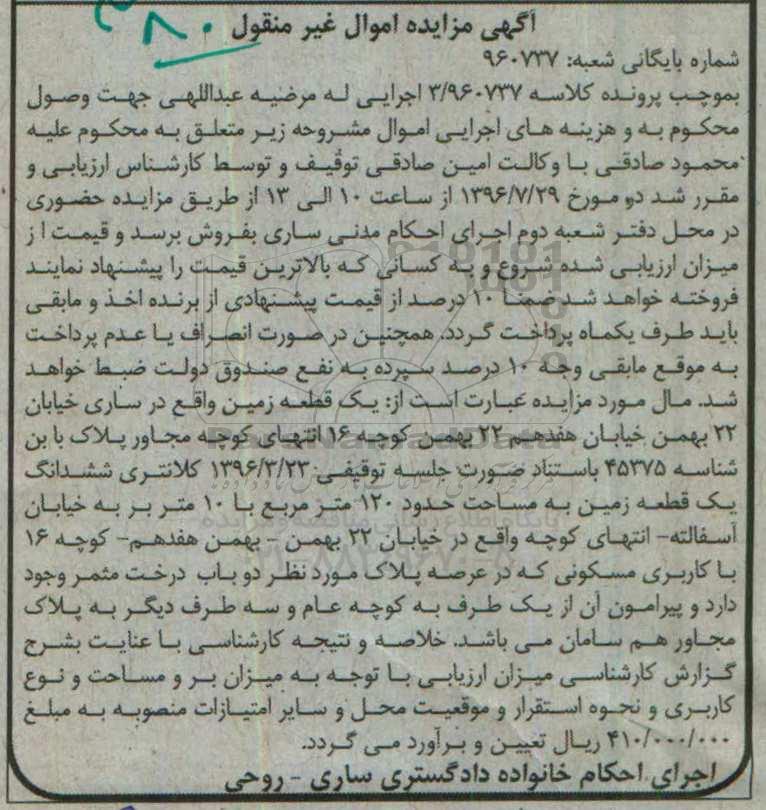 آگهی مزایده اموال غیر منقول
۸۰
شماره بایگانی شعبه: ۹۶۰۷۳۷
بموجب پرونده کلاسه ۳/۹۶۰۷۳۷ اجرایی له مرضیه عبداللهی جهت وصول
محکوم به و هزینه های اجرایی اموال مشروحه زیر متعلق به محکوم علیه
محمود صادقی با وکالت امین صادقی توقیف و توسط کارشناس ارزیابی و
مقرر شد در مورخ ۱۳۹۶/۷/۲۹ از ساعت ۱۰ الی ۱۳ از طریق مزایده حضوری
در محل دفتر شعبه دوم اجرای احکام مدنی ساری بفروش برسد و قیمت از
میزان ارزیابی شده شروع و به کسانی که بالاترین قیمت را پیشنهاد نمایند
فروخته خواهد شد ضمنا ۱۰ درصد از قیمت پیشنهادی از برنده اخذ و مابقی
باید ظرف یکماه پرداخت گردد. همچنین در صورت انصراف یا عدم پرداخت
به موقع مابقی وجه ۱۰ درصد سپرده به نفع صندوق دولت ضبط خواهد
شد. مال مورد مزایده عبارت است از: یک قطعه زمین واقع در ساری خیابان
۲۲ بهمن خیابان هفدهم ۲۲ بهمن کوچه ۱۶ انتهای کوچه مجاور پلاک با بن
شناسه ۴۵۳۷۵ باستناد صورت جلسه توقیفی ۱۳۹۶/۳/۲۳ کلانتری ششدانگ
یک قطعه زمین به مساحت حدود ۱۲۰ متر مربع با ۱۰ متر بر به خیابان
آسفالته- انتهای کوچه واقع در خیابان ۲۲ بهمن - بهمن هفدهم- کوچه ۱۶
با کاربری مسکونی که در عرصه پلاک مورد نظر دو باب درخت مثمر وجود
دارد و پیرامون آن از یک طرف به کوچه عام و سه طرف دیگر به پلاک
مجاور هم سامان می باشد. خلاصه و نتیجه کارشناسی با عنایت بشرح
گزارش کارشناسی میزان ارزیابی با توجه به میزان بر و مساحت و نوع
کاربری و نحوه استقرار و موقعیت محل و سایر امتیازات منصوبه به مبلغ
۴۱۰/۰۰۰/۰۰۰ ریال تعیین و برآورد می گردد.
اجرای احکام خانواده دادگستری ساری - روحی